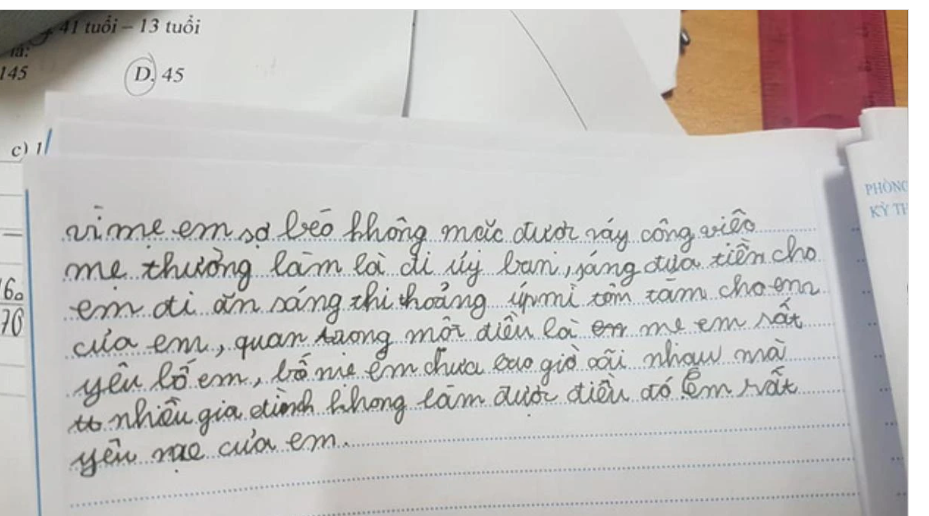 41 tuổi – 13 tuổi
là:
145
D. 45
c) 1
PHÒNG
KỲ TH
vì mẹ em sợ béo không mặc được váy công việc
mẹ thường làm là đi ủy ban, sáng đưa tiền cho
em đi ăn sáng thi thoảng úp mì tôm cho em
của em, quan trọng một điều là em mẹ em rất
yêu bố em, bố mẹ em chưa bao giờ cãi nhau mà
nhiều gia đình không làm được điều đó Em rất
yêu mẹ của em.